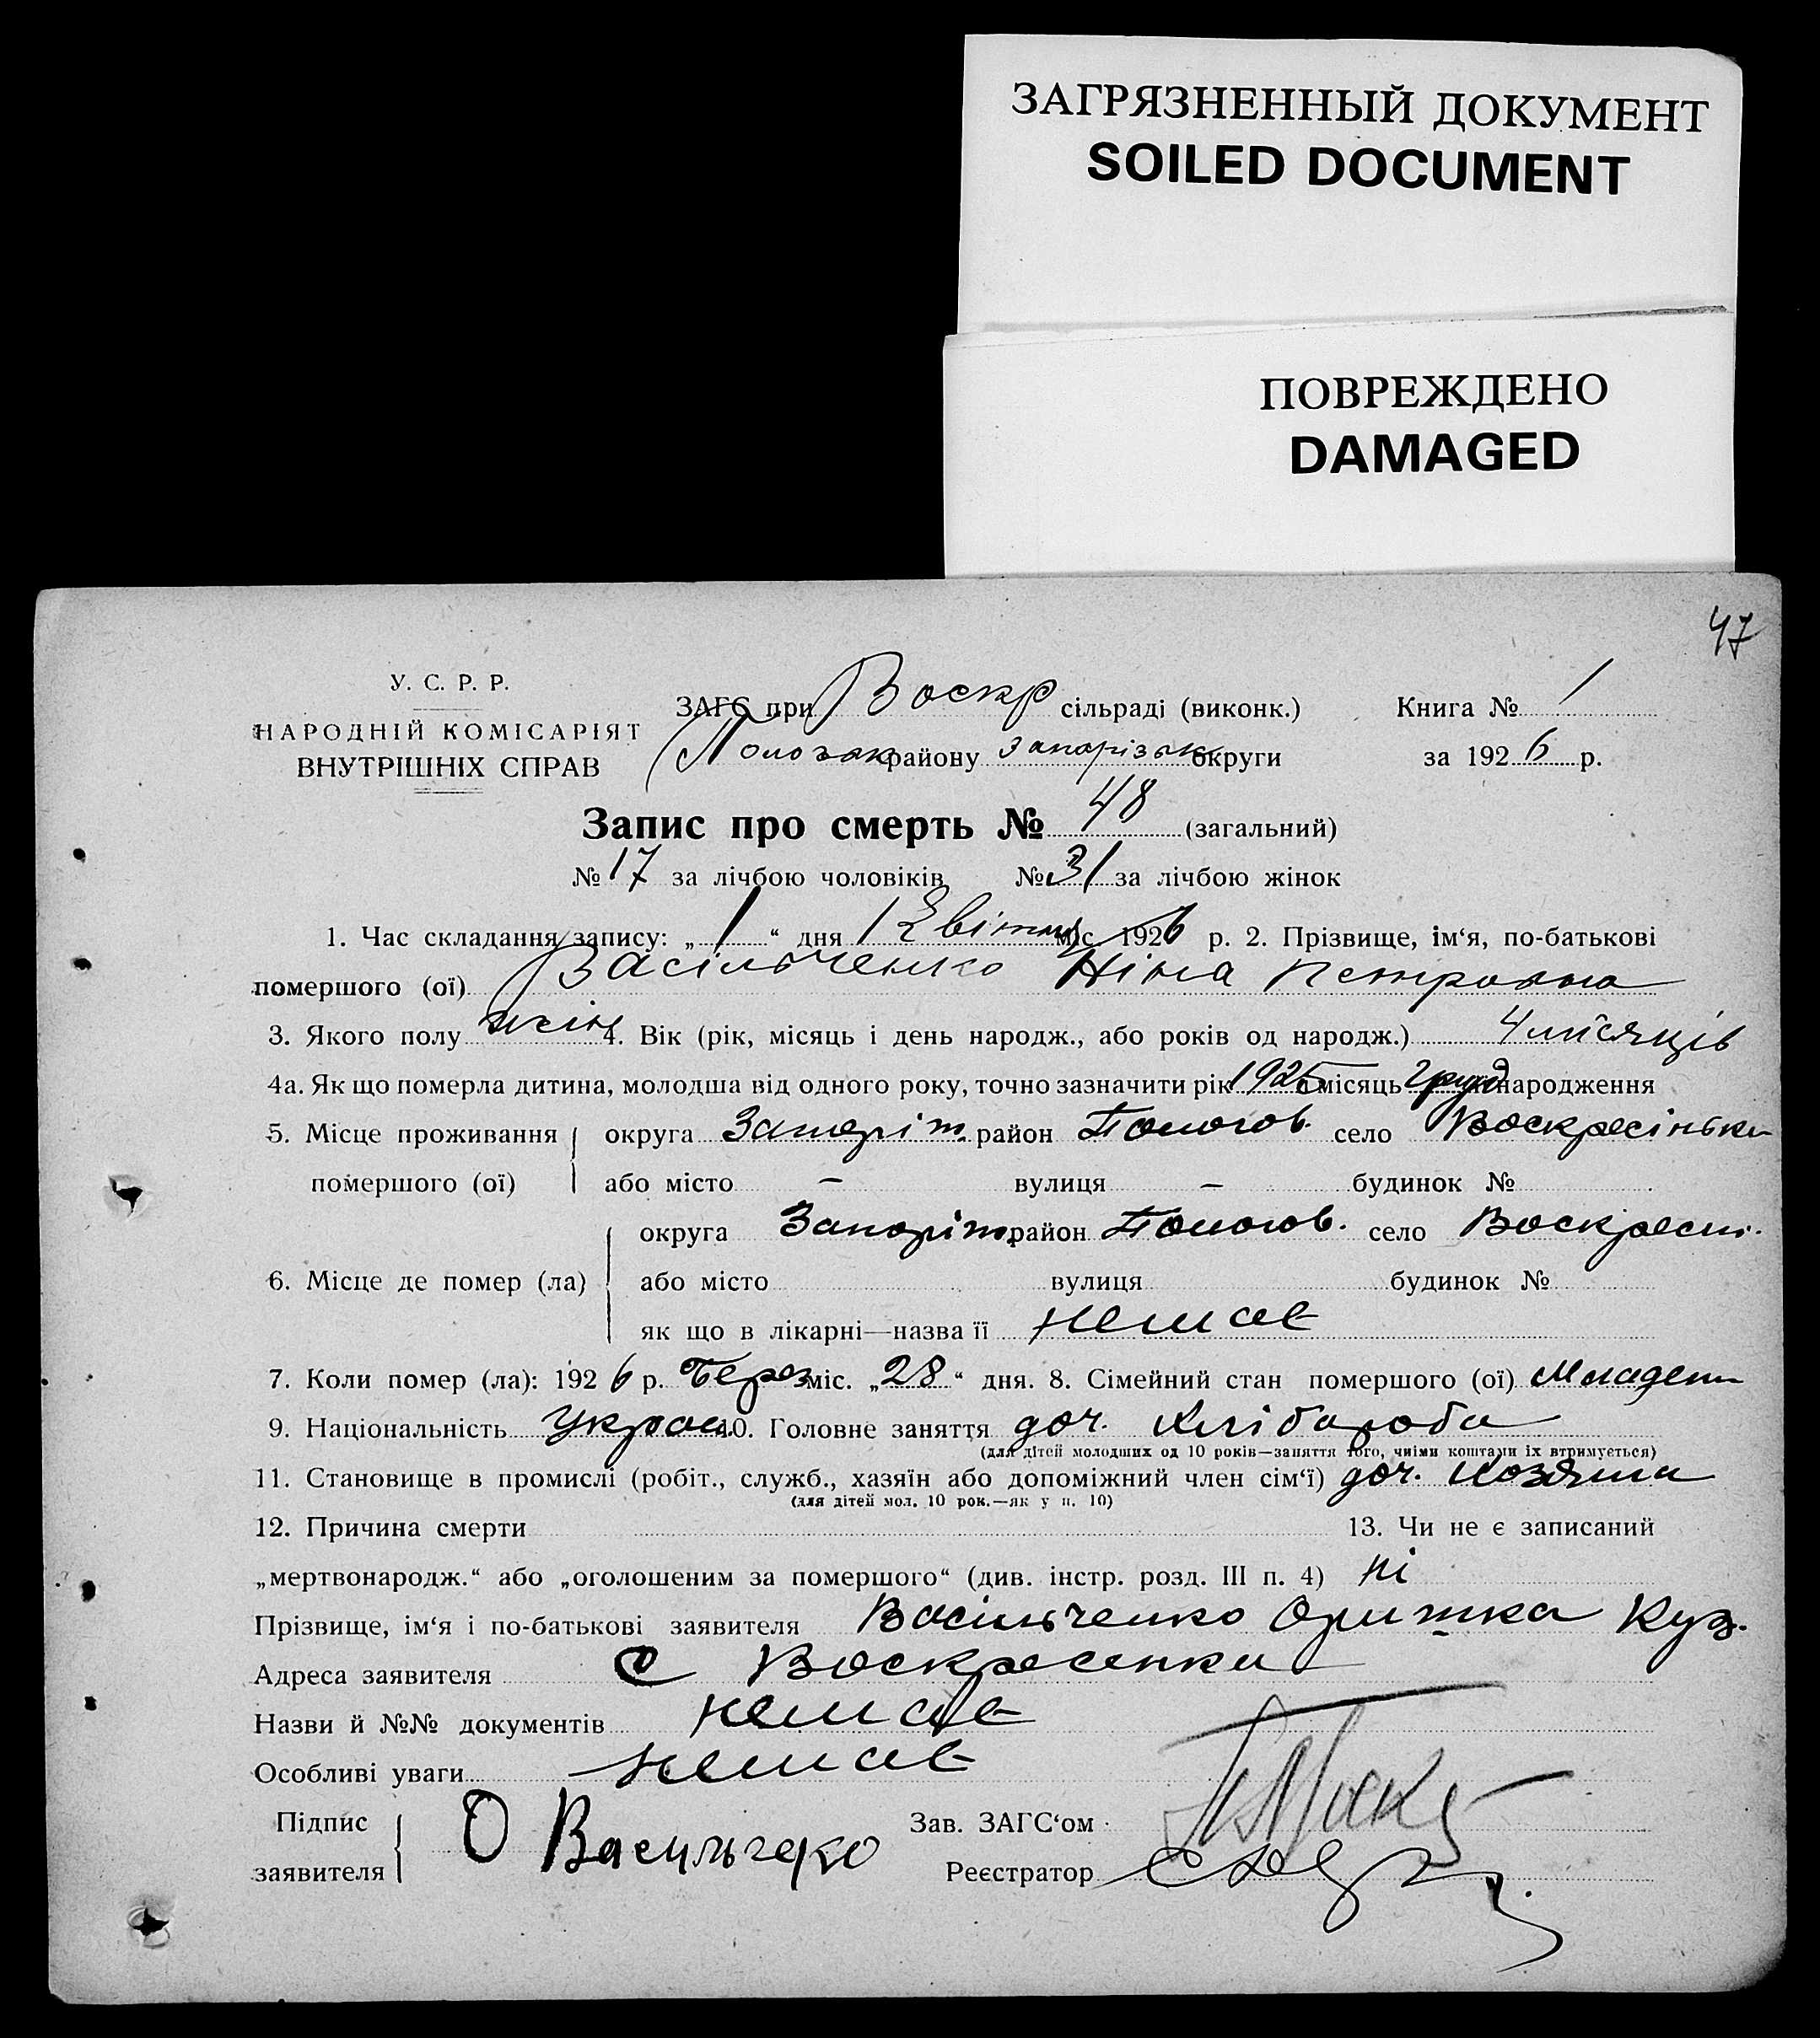 ЗАГРЯЗНЕННЫЙ ДОКУМЕНТ
SOILED DOCUMENT
ПОВРЕЖДЕНО
DAMAGED
47
У. С. Р. Р.
НАРОДНІЙ КОМІСАРІЯТ
ВНУТРІШНІХ СПРАВ
ЗАГС при Воскр сільраді (виконк.) Книга № 1
району округи за 1926 р.
Запис про смерть № 48 (загальний)
№ 17 за лічбою чоловіків № 31 за лічбою жінок
1. Час складання запису: „ 1 “ дня міс. 1926 р. 2. Прізвище, ім‘я, по-батькові
помершого (ої) Васільченко Ніна Петровна
3. Якого полу жін 4. Вік (рік, місяць і день народж., або років од народж.) 4 місяців
4а. Як що померла дитина, молодша від одного року, точно зазначити рік 1925 місяць груд народження
5. Місце проживання округа Запоріж. район Пологов. село Воскресіньки
помершого (ої) або місто – вулиця – будинок №
округа Запоріж. район Пологов. село Воскресен.
6. Місце де помер (ла) або місто вулиця будинок №
як що в лікарні—назва її немає
7. Коли помер (ла): 1926 р. Берез міс. „28“ дня. 8. Сімейний стан помершого (ої) Младен
9. Національність Украй 10. Головне заняття доч. Хлібороба
(для дітей молодших од 10 років—заняття того, чиїми коштами їх втримується)
11. Становище в промислі (робіт., служб., хазяїн або допоміжний член сім‘ї) доч. Хозяіна
(для дітей мол. 10 рок.—як у п. 10)
12. Причина смерти 13. Чи не є записаний
„мертвонародж.“ або „оголошеним за помершого“ (див. інстр. розд. III п. 4) ні
Прізвище, ім‘я і по-батькові заявителя Васільченко Оришка Куз.
Адреса заявителя с Воскресенки
Назви й №№ документів немає
Особливі уваги немає
Підпис заявителя О Васильчеко Зав. ЗАГС‘ом
Реєстратор